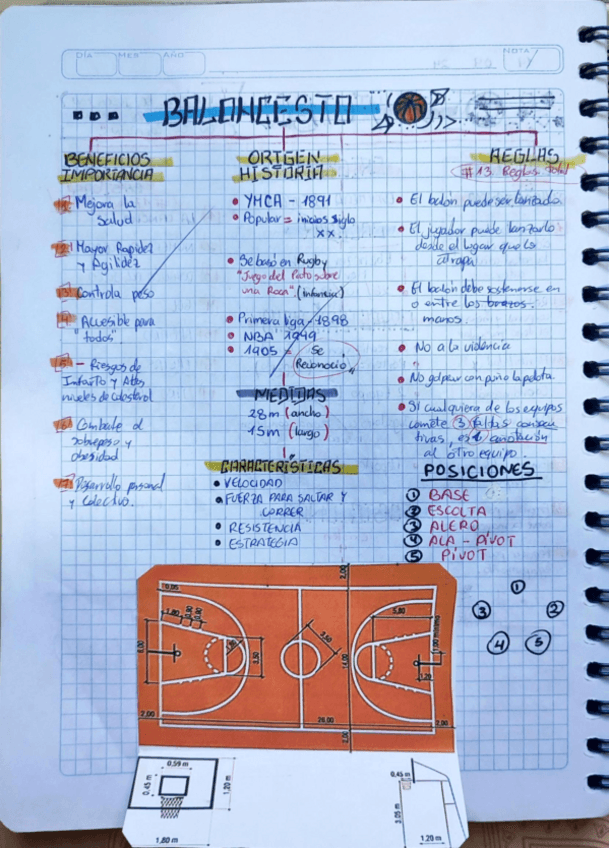 DÍA
MES
AÑO
NOTA
BALONCESTO
BENEFICIOS
IMPORTANCIA
1 Mejora la
Salud
2 Mayor Rapidez
y Agilidez
3 Controla peso
4 Accesible para
"todos"
5 - Riesgos de
Infarto y Altos
niveles de colesterol
6 Combate el
sobrepeso y
obesidad
7 Desarrollo personal
y colectivo.
ORIGEN
HISTORIA
• YMCA - 1891
• Popular = inicios siglo
XX.
• Se basó en Rugby
"Juego del Pato sobre
una Roca". (infancia)
• Primera liga 1898
• NBA 1949
• 1905 = Se
Reconoció
MEDIDAS
28m (ancho)
15m (largo)
CARACTERÍSTICAS
• VELOCIDAD
• FUERZA PARA SALTAR Y
CORRER
• RESISTENCIA
• ESTRATEGIA
REGLAS
#13. Reglas total
• El balón puede ser lanzado.
• El jugador puede lanzarlo
desde el lugar que lo
atrapa
• El balón debe sostenerse en
o entre los brazos.
manos.
• No a la violencia
• No golpear con puño la pelota.
• Si cualquiera de los equipos
comete 3 faltas consecu
tivas, es 1 anotación
al otro equipo.
POSICIONES
1 BASE
2 ESCOLTA
3 ALERO
4 ALA - PÍVOT
5 PÍVOT
1
3 2
4 5
0,05
2,00
1,80
0,90
0,90
6,00
1,80
3,60
3,60
14,00
5,80
1,20
2,00
26,00
2,00
2,00
0,59 m
0,45 m
1,20 m
1,80 m
0,45 m
3,05 m
1,20 m